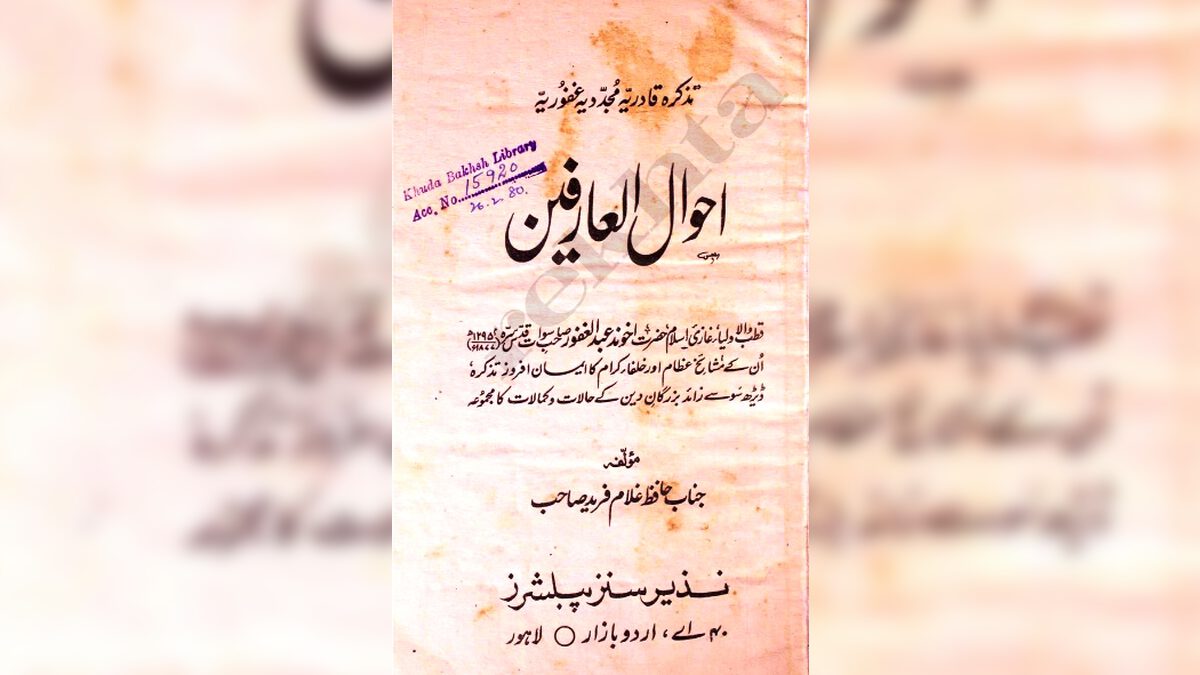 تذکرہ قادریہ مُجدّدیہ غفُوریہ
Khuda Bakhsh Library
Acc. No. 15920
26.2.80.
احوال العارفین
یعنی
قطب الاولیاء، غازیٔ اسلام حضرت اخوند عبدالغفور صاحب سوات قدّس سرّہ (۱۲۹۵ھ ۱۸۷۷ء)
اُن کے مشائخِ عظام اور خلفاء کرام کا ایمان افروز تذکرہ،
ڈیڑھ سَو سے زائد بزرگانِ دین کے حالات و کمالات کا مجموعہ
مؤلّفہ
جناب حافظ غلام فرید صاحب
نذیر سنز پبلشرز
۴۰ اے، اردو بازار ○ لاہور
rekhta